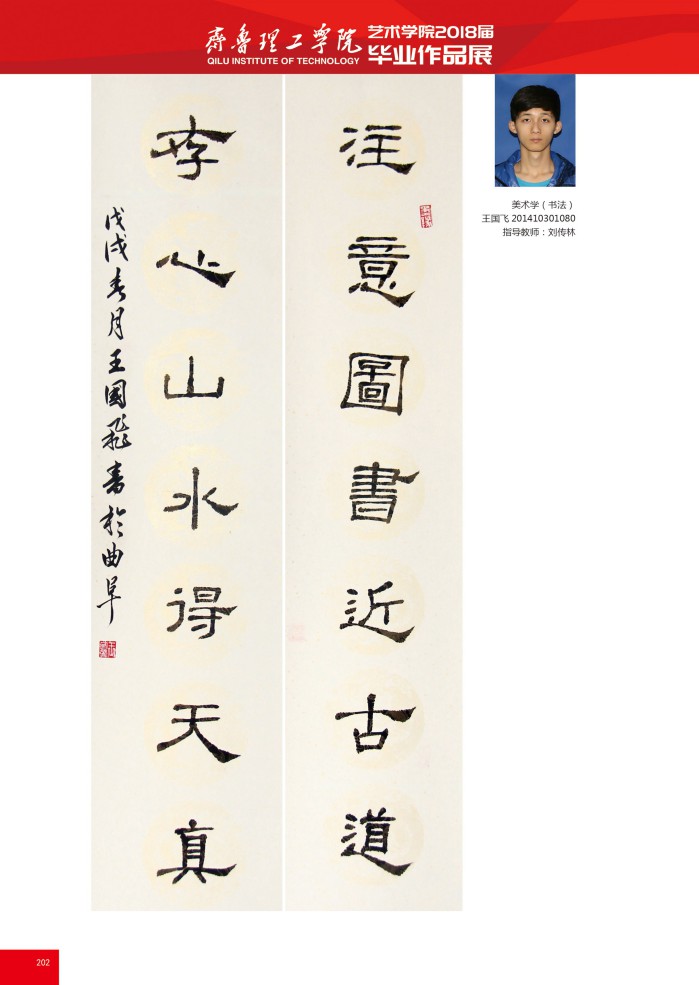 齊魯理工學院
QILU INSTITUTE OF TECHNOLOGY
艺术学院2018届
毕业作品展
美术学（书法）
王国飞 201410301080
指导教师：刘传林
注意圖書近古道
存心山水得天真
戊戌春月王國飛書於曲阜
202